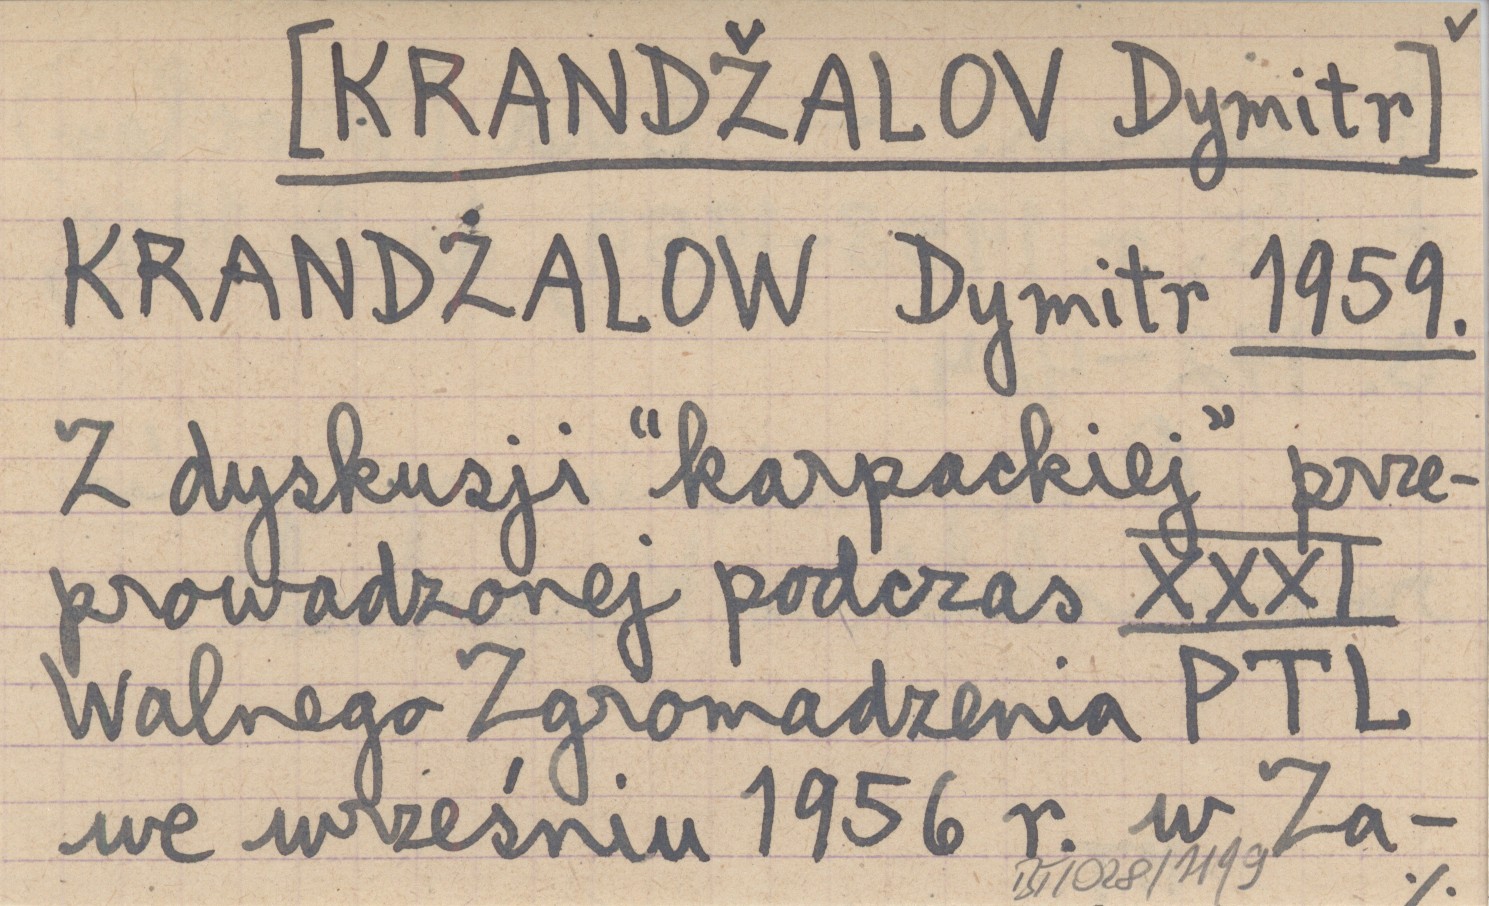 [KRANDŽALOV Dymitr]
KRANDŻALOW Dymitr 1959.
Z dyskusji “karpackiej” prze-
prowadzonej podczas XXXI
Walnego Zgromadzenia PTL
we wrześniu 1956 r. w Za-
./.